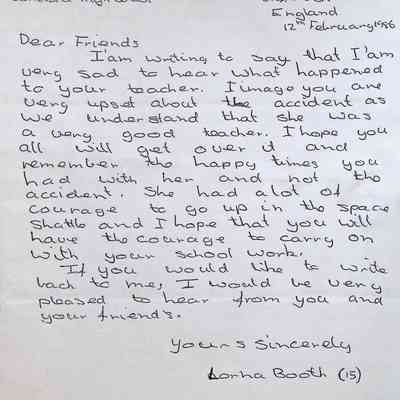 England
12th February 1986
Dear Friends
I'am writing to say that I'am
very sad to hear what happened
to your teacher. I image you are
very upset about the accident as
we understand that she was
a very good teacher. I hope you
all will get over it and
remember the happy times you
had with her and not the
accident. She had alot of
courage to go up in the space
shattle and I hope that you will
have the courage to carry on
with your school work.
If you would like to write
back to me, I would be very
pleased to hear from you and
your friends.
Yours Sincerely
Lorna Booth (15)